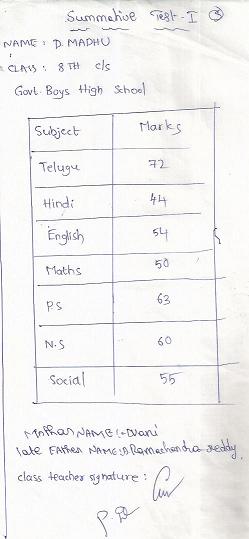 Summative Test-I 3
NAME : D. MADHU
CLASS : 8TH c/s
Govt. Boys High School
Subject Marks
Telugu 72
Hindi 44
English 54
Maths 50
P.S 63
N.S 60
Social 55
Mother NAME :-
late Father NAME: D Ramachandra reddy
class teacher signature :